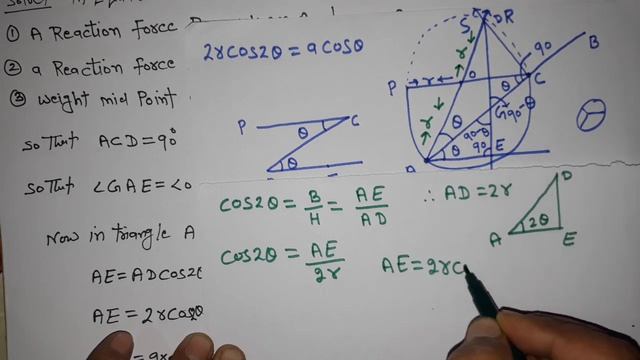 ① A Reaction Force
② a Reaction force
③ weight mid Point
so that ACD=90°
so that ∠GAE=∠
Now in triangle A
AE=ADCOS2
AE=2rCosθ
2rCOS2θ=aCOSθ
P C
θ
θ
S D R
90
B
P r O C
r
r
θ G 90-θ
90-θ
θ 90 E
COS2θ=B/H=AE/AD ∴ AD=2r
COS2θ=AE/2r AE=2rC
D
2θ
A E